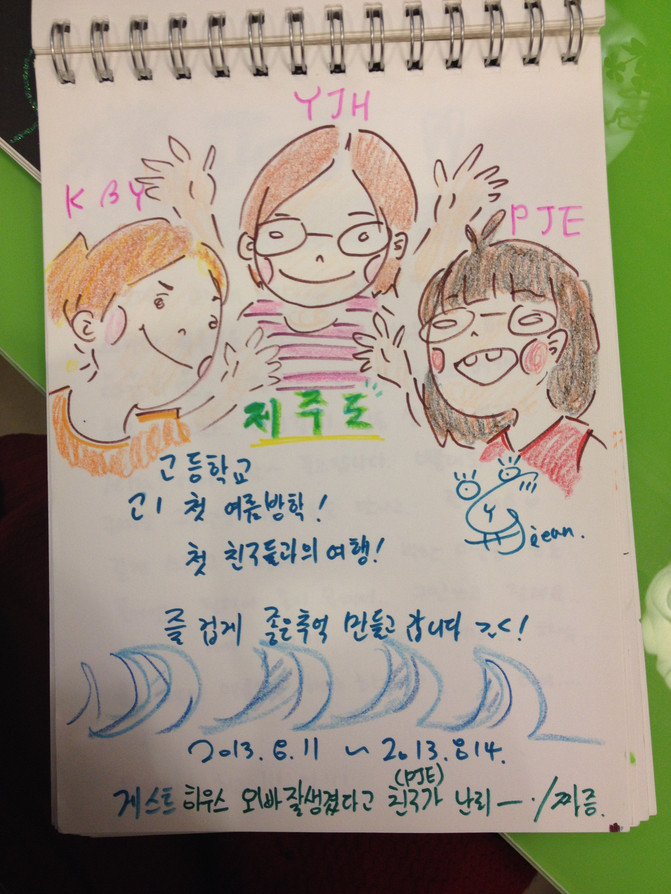 YJH
KBY
PJE
제주도
고등학교
고1 첫 여름방학!
첫 친구들과의 여행!
즐겁게 좋은추억 만들고 갑니다 >.<!
2013. 8. 11 ~ 2013. 8 14.
(PJE)
게스트 하우스 오빠 잘생겼다고 친구가 난리ㅡ. /짜증.